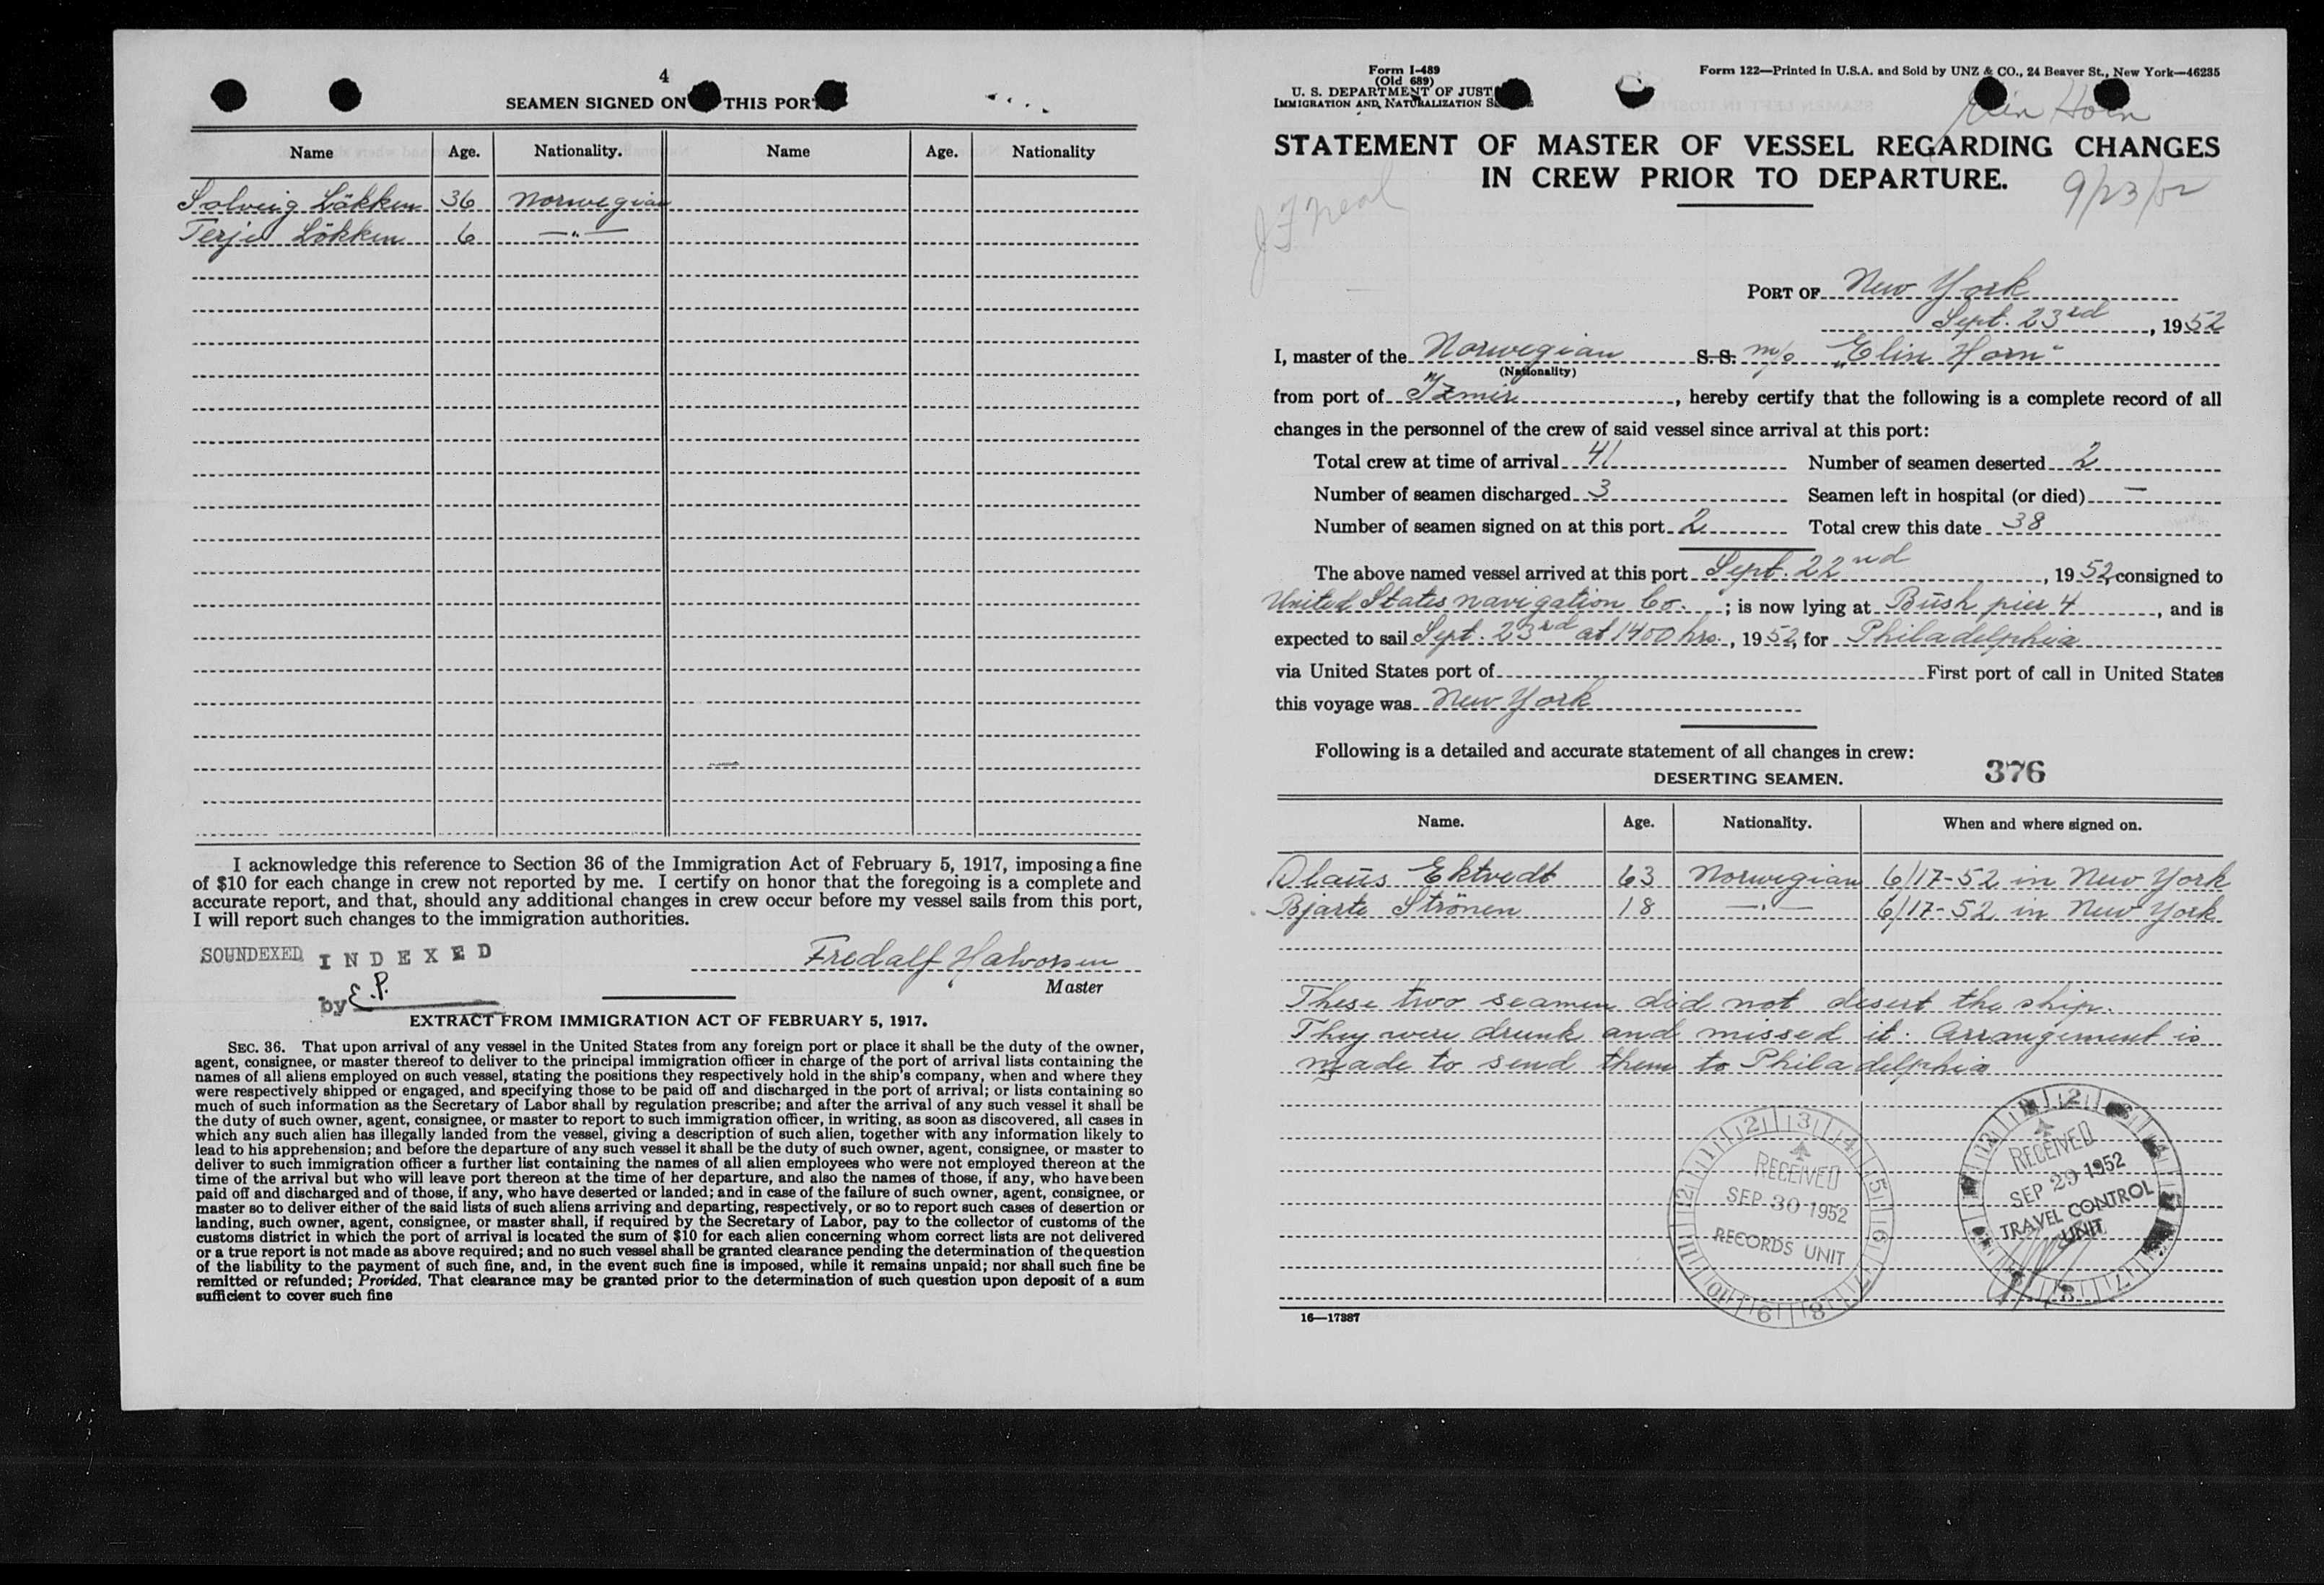 4
SEAMEN SIGNED ON THIS PORT
Name Age. Nationality. Name Age. Nationality
Solveig Lökken 36 Norwegian
Terje Lökken 6 —"—
I acknowledge this reference to Section 36 of the Immigration Act of February 5, 1917, imposing a fine
of $10 for each change in crew not reported by me. I certify on honor that the foregoing is a complete and
accurate report, and that, should any additional changes in crew occur before my vessel sails from this port,
I will report such changes to the immigration authorities.
SOUNDEXED INDEXED
by E.P.
Fredalf Halvorsen
Master
EXTRACT FROM IMMIGRATION ACT OF FEBRUARY 5, 1917.
SEC. 36. That upon arrival of any vessel in the United States from any foreign port or place it shall be the duty of the owner,
agent, consignee, or master thereof to deliver to the principal immigration officer in charge of the port of arrival lists containing the
names of all aliens employed on such vessel, stating the positions they respectively hold in the ship's company, when and where they
were respectively shipped or engaged, and specifying those to be paid off and discharged in the port of arrival; or lists containing so
much of such information as the Secretary of Labor shall by regulation prescribe; and after the arrival of any such vessel it shall be
the duty of such owner, agent, consignee, or master to report to such immigration officer, in writing, as soon as discovered, all cases in
which any such alien has illegally landed from the vessel, giving a description of such alien, together with any information likely to
lead to his apprehension; and before the departure of any such vessel it shall be the duty of such owner, agent, consignee, or master to
deliver to such immigration officer a further list containing the names of all alien employees who were not employed thereon at the
time of the arrival but who will leave port thereon at the time of her departure, and also the names of those, if any, who have been
paid off and discharged and of those, if any, who have deserted or landed; and in case of the failure of such owner, agent, consignee, or
master so to deliver either of the said lists of such aliens arriving and departing, respectively, or so to report such cases of desertion or
landing, such owner, agent, consignee, or master shall, if required by the Secretary of Labor, pay to the collector of customs of the
customs district in which the port of arrival is located the sum of $10 for each alien concerning whom correct lists are not delivered
or a true report is not made as above required; and no such vessel shall be granted clearance pending the determination of the question
of the liability to the payment of such fine, and, in the event such fine is imposed, while it remains unpaid; nor shall such fine be
remitted or refunded; Provided, That clearance may be granted prior to the determination of such question upon deposit of a sum
sufficient to cover such fine
Form I-489
(Old 689)
U. S. DEPARTMENT OF JUST
IMMIGRATION AND NATURALIZATION S
Form 122—Printed in U.S.A. and Sold by UNZ & CO., 24 Beaver St., New York—46235
Elin Horn
STATEMENT OF MASTER OF VESSEL REGARDING CHANGES
IN CREW PRIOR TO DEPARTURE.
9/23/52
J F Neal
PORT OF New York
Sept. 23rd, 1952
I, master of the Norwegian S. S. m/s "Elin Horn"
(Nationality)
from port of Izmir, hereby certify that the following is a complete record of all
changes in the personnel of the crew of said vessel since arrival at this port:
Total crew at time of arrival 41 Number of seamen deserted 2
Number of seamen discharged 3 Seamen left in hospital (or died) —
Number of seamen signed on at this port 2 Total crew this date 38
The above named vessel arrived at this port Sept. 22nd, 1952 consigned to
United States navigation Co.; is now lying at Bush pier 4, and is
expected to sail Sept. 23rd at 1400 hrs., 1952, for Philadelphia
via United States port of First port of call in United States
this voyage was New York
Following is a detailed and accurate statement of all changes in crew:
DESERTING SEAMEN.
376
Name. Age. Nationality. When and where signed on.
Olaus Ektvedt 63 Norwegian 6/17-52 in New York
Bjarte Strönen 18 —"— 6/17-52 in New York
These two seamen did not desert the ship.
They were drunk and missed it. Arrangement is
made to send them to Philadelphia
RECEIVED
SEP 30 1952
RECORDS UNIT
RECEIVED
SEP 29 1952
TRAVEL CONTROL
UNIT
16—17387